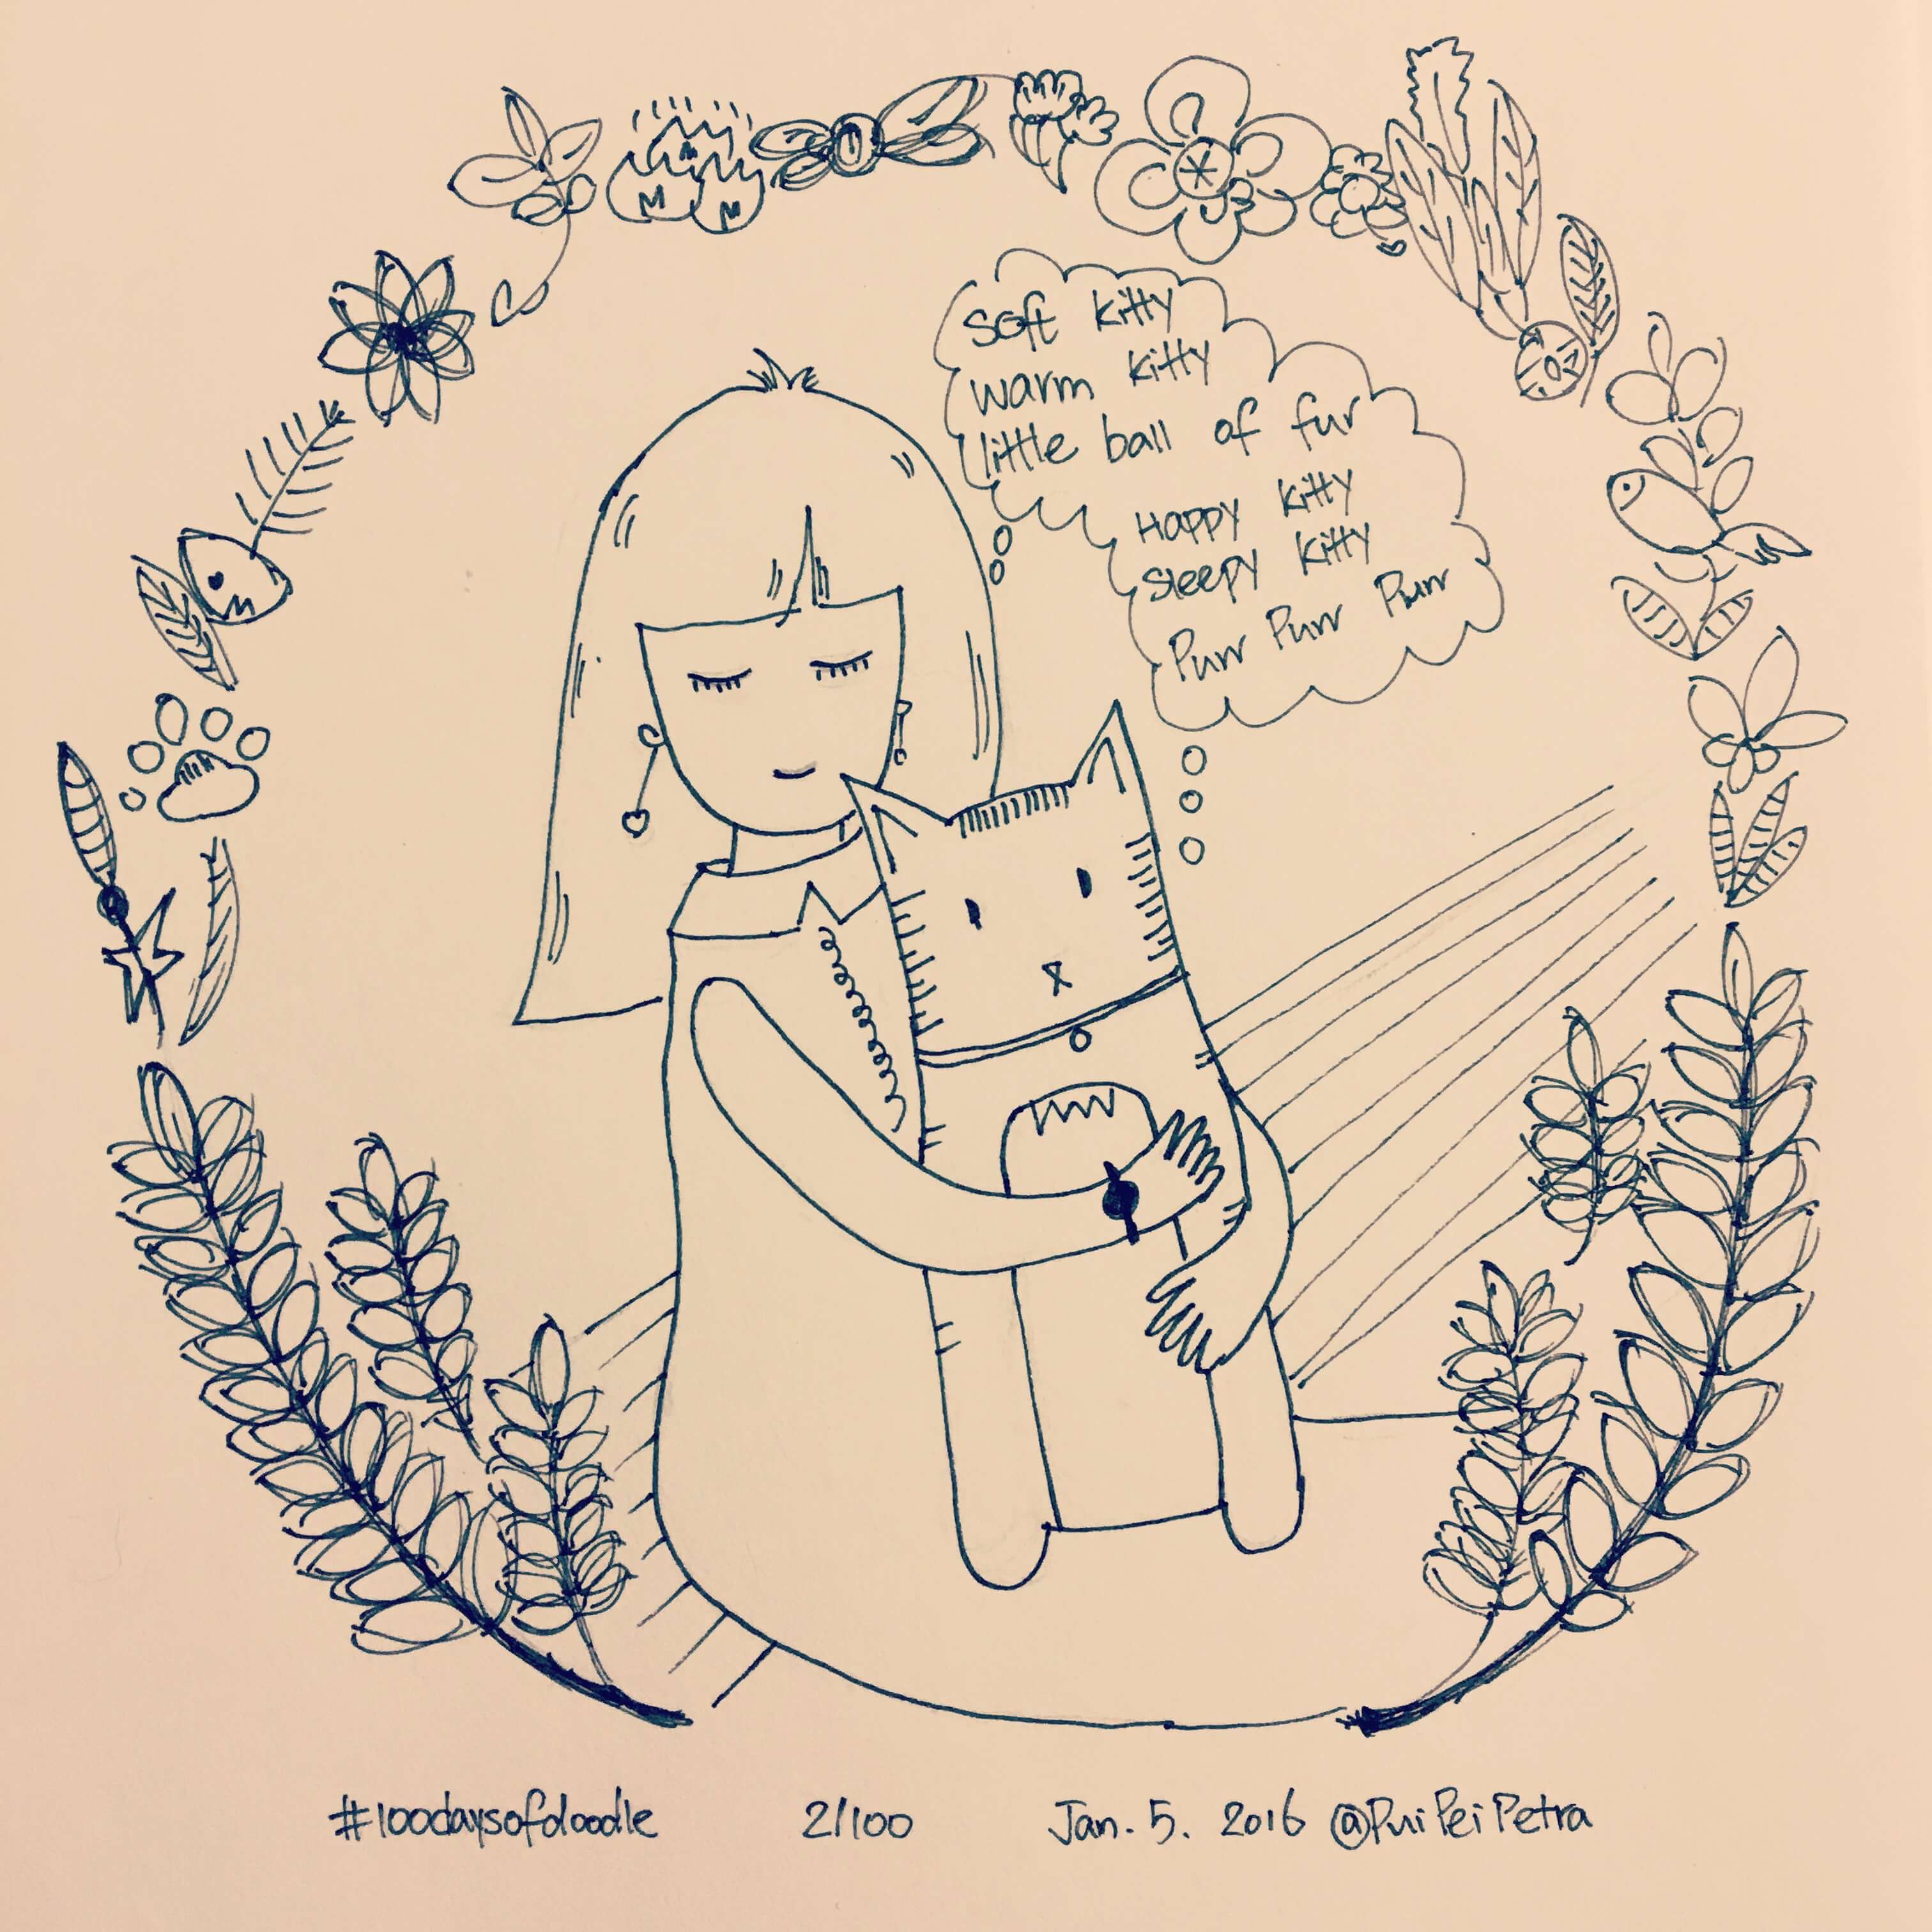 Soft kitty
warm kitty
little ball of fur
Happy kitty
Sleepy kitty
Purr Purr Purr
#100daysofdoodle 2/100 Jan. 5. 2016 @PuiPeiPetra